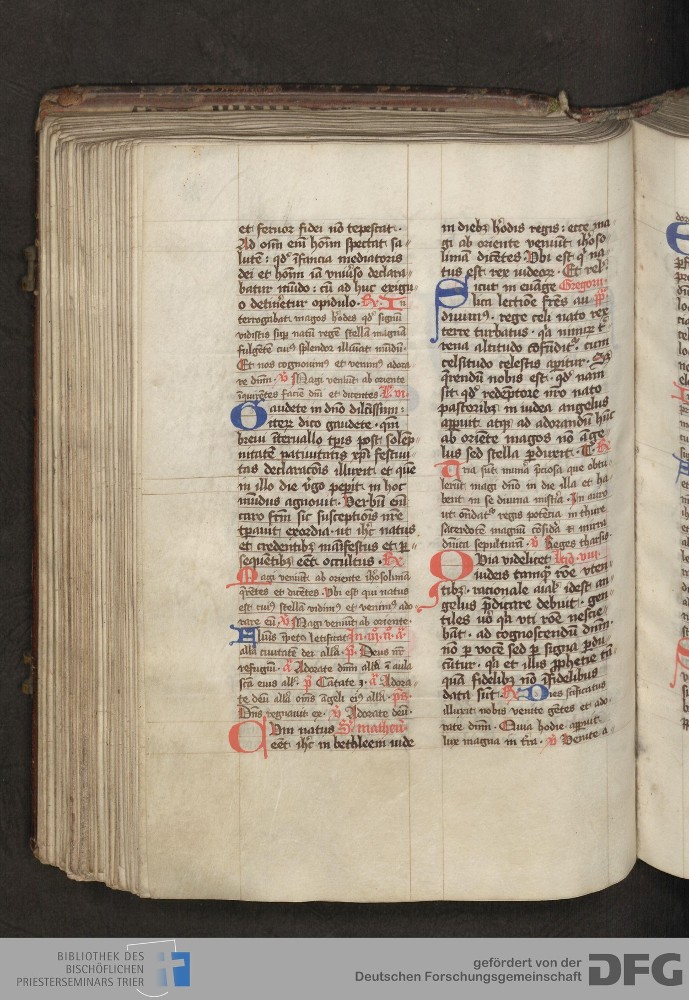 et feruor fidei nō tepescat·
Ad om̄n em̄ hom̄n spectat sa-
lutem̄: qd' īfancia mediatoris
dei et hom̄n iā vniu'so declara-
batur mūdo: cū ad huc exigu-
o detin'etur opidulo· Rx· In
terrogabat magos h'odes qd' signū
vidistis sup natū regē stellā magnā
fulgētē cui' splendor illūiat mūdū·
Et nos cognouim' et venim' adora
re dnm̄· v Magi veniūt ab oriente
īquirētes faciē dnī et dicentes L. vi·
Gaudete in dn̄o dilc̄issimi:
iterū dico gaudete· qm̄
breui īteruallo tp̄ris post solep-
nitatē natiuitatis xp̄i festiui
tas declaracōis illuxit et quē
in illo die v'go pepit· in hoc
mūdus agnouit· Verbū em̄
caro fc̄m sic susceptiōis nr̄e
tpauit exordia· ut ihc̄ natus
et credentibz māifestus et p-
sequētibz eēt occultus· Rx
Magi veniūt ab oriente ih'osolimā
q'rētes et dicētes· Vbi est qui natus
est cui' stellā vidim' et venim' ado-
rare eū· v Magi veniūt ab oriente·
alla ciuitatē dei alla· p· Deus nr̄
refugiū· a' Adorate dnm̄ alla ī aula
sc̄a eius all'· p Cātate ·j· a' Adora-
te deū alla om̄s āgeli ei' alla· ps·
Dns regnauit ex· v Adorate deū·
Cum natus S· matheū·
eēt ihc̄ in bethleem iude
in diebz h'odis regis: ecce ma-
gi ab oriente veniūt ih'oso
limā dicētes· Vbi est q' na-
tus est rex iudeor· Et rel'·
Sicut in euāge Gregorii·
lica lectiōe fr̄es
diuimus· rege celi nato rex
terre turbatus· qa nimir t'
rena altitudo cōfūdit'· cum
celsitudo celestis apitur· Sz
q'rendū nobis est· qd' nam
sit qd' redēptore nr̄o nato
pastoribz in iudea angelus
apparuit atqz ad adorandū hūc
ab oriēte magos nō āge-
lus sed stella pduxit·
Tria sūt mun'a p̄ciosa que obtu-
lerūt magi dn̄o in die illa et ha-
bent in se diuina mist'ia· In auro
ut ondat' regis potēcia in thure
sacerdotē magnū cōsida et mirra
dn̄icā sepulturā· v Reges tharsis·
Quia videlicet Lcd· viii·
iudeis tamqz rōe vten-
tibz· racionale aial' idest an-
gelus p̄dicare debuit· gen-
tiles uo qa vti rōe nescie-
bāt· ad cognoscendū dnm̄·
nō p vocē sed p signa pdu-
cūtur· qa et illis pphetie tā-
quā fidelibz et īfidelibus
data sūt· Rx Dies scificatus
illuxit nobis venite gētes et ado-
rate dnm̄· Quia hodie apparuit
lux magna in t'ra· v Venite a-
BIBLIOTHEK DES
BISCHÖFLICHEN
PRIESTERSEMINARS TRIER
gefördert von der
Deutschen Forschungsgemeinschaft
DFG